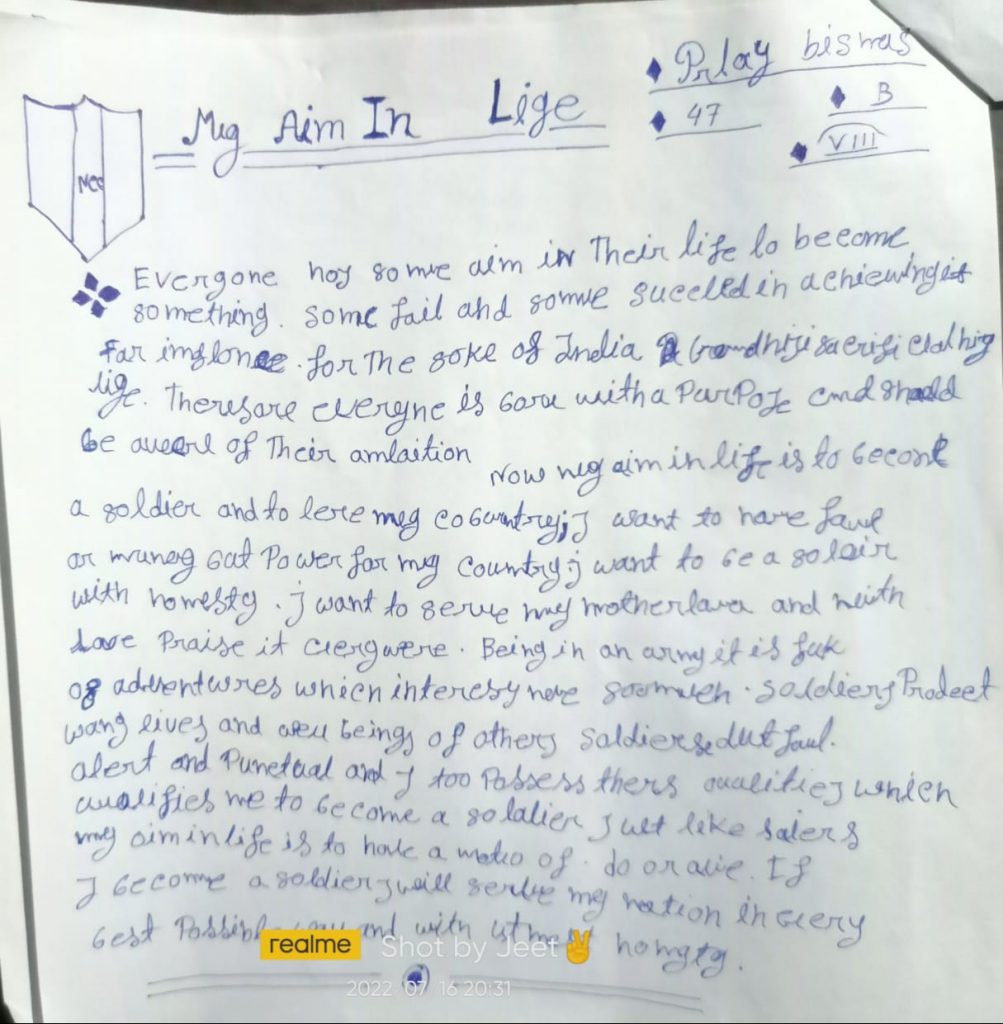 Prlay biswas
Meg Aim In Lige
47
B
VIII
NCC
Evergone hoy somve aim in Their life lo become
something. some fail and somve succeed in achiewing it
Far imslonce. for The soke of India Gandhiji sacrifi ced his
lige. Theresare everyne is Garn with a PurPose and should
be aware of Their amlaition
Now meg aim in life is to Gecome
a soldier and to lere meg coGuntrey; J want to have
or muneg Gut Power for my country j want to Ge a solair
with homesty. j want to serve my motherlava and
Love Praise it everywere. Being in an army it is
of adventures which interesy
lives and well beings of others soldiers
alert and Punctual and J too Possess thers qualities which
qualifies me to Gecome a solalier Just like
my aim in life is to have a moto of. do or avie. If
J Gecome a soldier J will serve my nation in every
Gest Possible and with homgty.
realme Shot by Jeet✌
2022/07/16 20:31